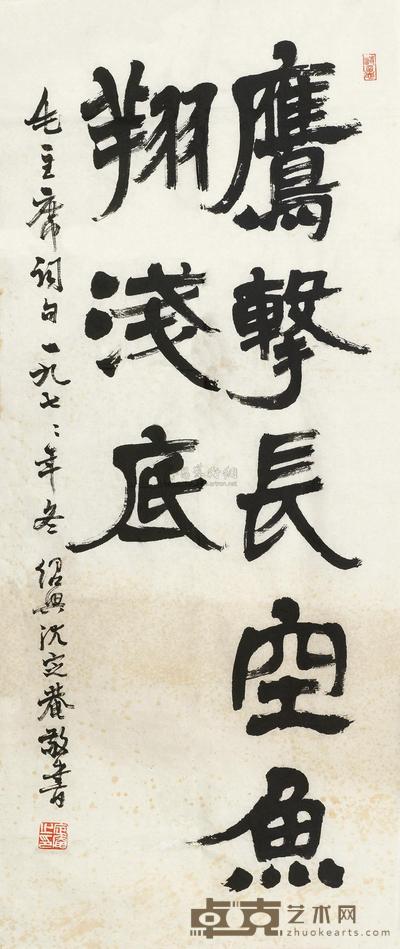 鷹擊長空魚
翔淺底
毛主席詞句一九七二年冬紹興沈定菴敬書
卓克艺术网
zhuokearts.com